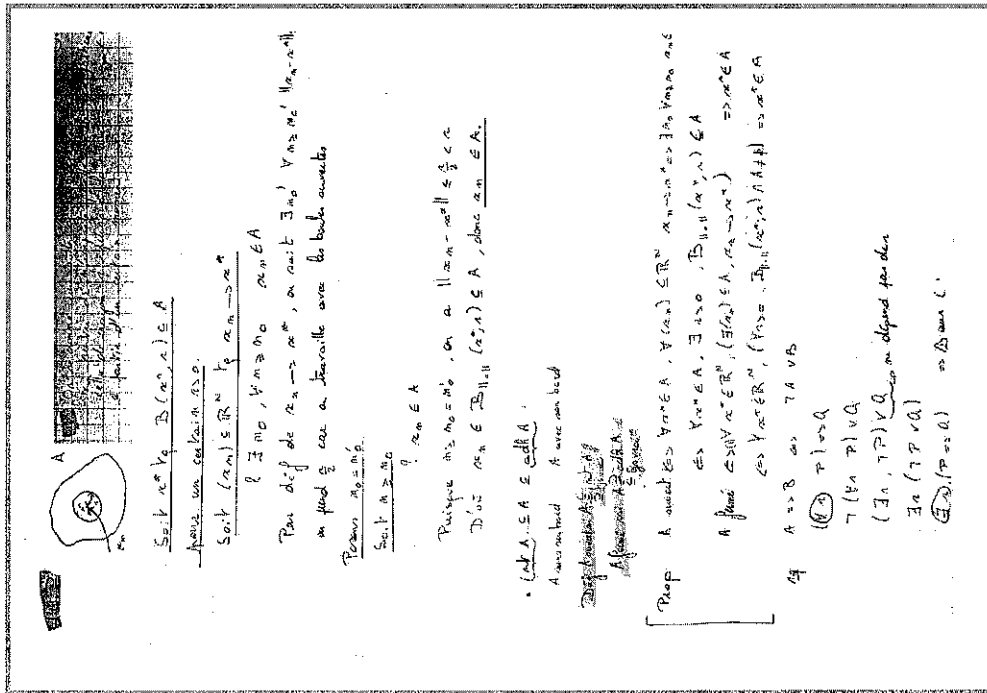 A
Soit x* tq B(x*, r) ⊆ A
pour un certain r>0.
Soit (xn) ⊆ ℝᴺ tq xn → x*
? ∃ m0, ∀ n ≥ m0 xn ∈ A
Par déf de xn → x*, on sait ∃ m0' ∀ n ≥ m0' ||xn - x*||
on prend r/2 car on travaille avec les boules ouvertes
Posons m0 = m0'
Soit n ≥ m0
? xn ∈ A
Puisque n ≥ m0 = m0', on a ||xn - x*|| ≤ r/2 < r
D'où xn ∈ B||·|| (x*, r) ⊆ A, donc xn ∈ A.
• int A ⊆ A ⊆ adh A
A sans son bord A avec son bord
Prop A ouvert <=> ∀x* ∈ A, ∀(xn) ⊆ ℝᴺ xn → x* => ∃ n0 ∀ n ≥ n0 xn ∈
<=> ∀x* ∈ A, ∃ r>0, B||·|| (x*, r) ⊆ A
A fermé <=> ∀x* ∈ ℝᴺ, (∃(xn) ⊆ A, xn → x*) => x* ∈ A
<=> ∀x* ∈ ℝᴺ, (∀r>0 B||·|| (x*, r) ∩ A ≠ ∅) => x* ∈ A
A => B <=> ¬A ∨ B
(∀r P) => Q
¬(∀r P) ∨ Q
(∃r, ¬P) ∨ Q ne dépend pas de r
∃r (¬P ∨ Q)
∃r, (P => Q)